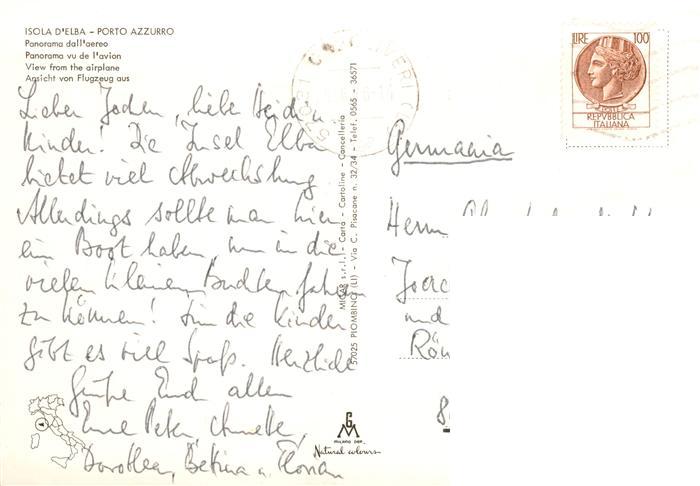 ISOLA D'ELBA – PORTO AZZURRO
Panorama dall'aereo
Panorama vu de l'avion
View from the airplane
Ansicht von Flugzeug aus
Lieber Jochen, liebe Heidi u.
Kinder! Die Insel Elba
bietet viel Abwechslung.
Allerdings sollte man hier
ein Boot haben, um in die
vielen kleinen Buchten fahren
zu können! Für die Kinder
gibt es viel Spaß. Herzliche
Grüße Euch allen
Eure Peter, Annette,
Dorothea, Bettina u. Florian
MICAR s.r.l. - Carta - Cartoline - Cancelleria
57025 PIOMBINO (LI) - Via C. Pisacane n. 32/34 - Telef. 0565 - 36571
MILANO DEP.
Natural colours
LIRE 100
POSTE
REPVBBLICA
ITALIANA
Germania
Herrn
und
8